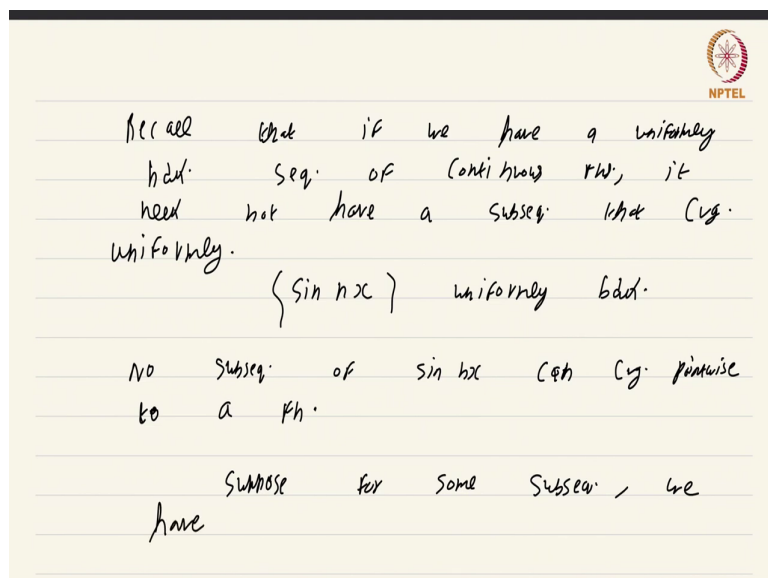 NPTEL
Recall that if we have a uniformly
bdd. seq. of continuous fns, it
need not have a subseq. that Cvg.
uniformly.
{sin nx} uniformly bdd.
No subseq. of sin nx can Cvg. pointwise
to a fn.
Suppose for some subseq., we
have